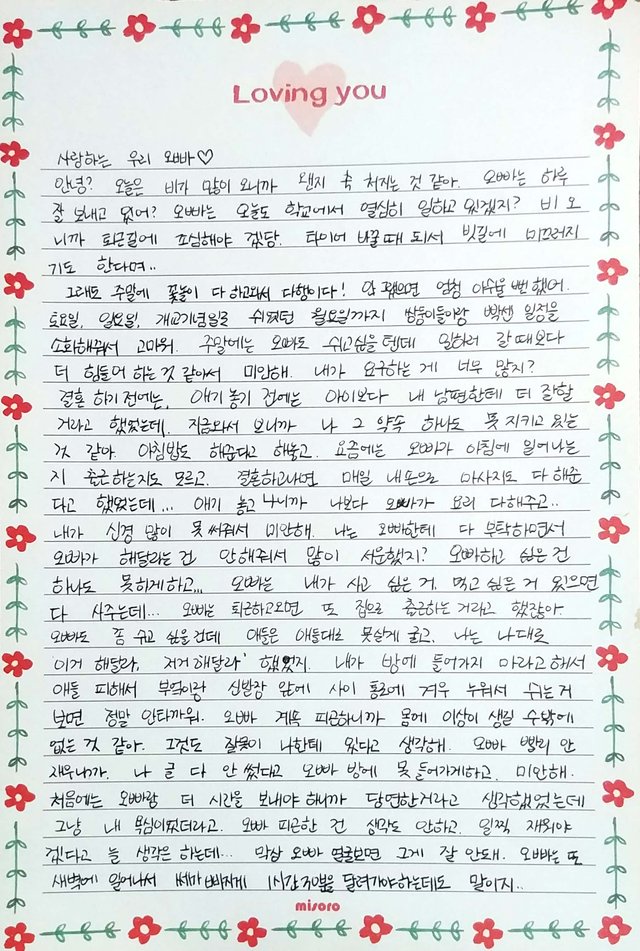 Loving you
사랑하는 우리 오빠♡
안녕? 오늘은 비가 많이 오니까 왠지 축 처지는 것 같아. 오빠는 하루
잘 보내고 있어? 오빠는 오늘도 학교에서 열심히 일하고 있겠지? 비 오
니까 퇴근길에 조심해야 겠당. 타이어 바꿀 때 되서 빗길에 미끄러지
기도 한다며..
그래도 주말에 꽃놀이 다 하고와서 다행이다! 안 그랬으면 엄청 아쉬울 뻔 했어.
토요일, 일요일, 개교기념일로 쉬었던 월요일까지 쌍둥이들이랑 빡센 일정을
소화해줘서 고마워. 주말에는 오빠도 쉬고싶을텐데 일하러 갈 때보다
더 힘들어 하는 것 같아서 미안해. 내가 요구하는 게 너무 많지?
결혼 하기 전에는, 애기 놓기 전에는 아이보다 내 남편한테 더 잘할
거라고 했었는데, 지금와서 보니까 나 그 약속 하나도 못 지키고 있는
것 같아. 아침밥도 해준다고 해놓고. 요즘에는 오빠가 아침에 일어나는
지 출근하는지도 모르고. 결혼하고나면 매일 내손으로 마사지도 다 해준
다고 했었는데... 애기 놓고 나니까 나보다 오빠가 요리 다해주고..
내가 신경 많이 못 써줘서 미안해. 나는 오빠한테 다 부탁하면서
오빠가 해달라는 건 안해줘서 많이 서운했지? 오빠하고 싶은 건
하나도 못하게 하고... 오빠는 내가 사고 싶은 거, 먹고 싶은 거 있으면
다 사주는데... 오빠는 퇴근하고오면 또 집으로 출근하는 거라고 했잖아.
오빠도 좀 쉬고 싶을 건데 애들은 애들대로 못살게 굴고, 나는 나대로
'이거 해달라, 저거 해달라' 했었지. 내가 방에 들어가지 마라고 해서
애들 피해서 부엌이랑 신발장 앞에 사이 통로에 겨우 누워서 쉬는 거
보면 정말 안타까워. 오빠 계속 피곤하니까 몸에 이상이 생길 수밖에
없는 것 같아. 그것도 잘못이 나한테 있다고 생각해. 오빠 빨리 안
재우니까. 나 글 다 안 썼다고 오빠 방에 못 들어가게하고. 미안해.
처음에는 오빠랑 더 시간을 보내야 하니까 당연한거라고 생각했었는데
그냥 내 욕심이었더라고. 오빠 피곤한 건 생각도 안하고. 일찍 재워야
겠다고 늘 생각은 하는데... 막상 오빠 얼굴보면 그게 잘 안돼. 오빠는 또
새벽에 일어나서 쎄빠지게 1시간 30분을 달려가야하는데도 말이지..
misoro